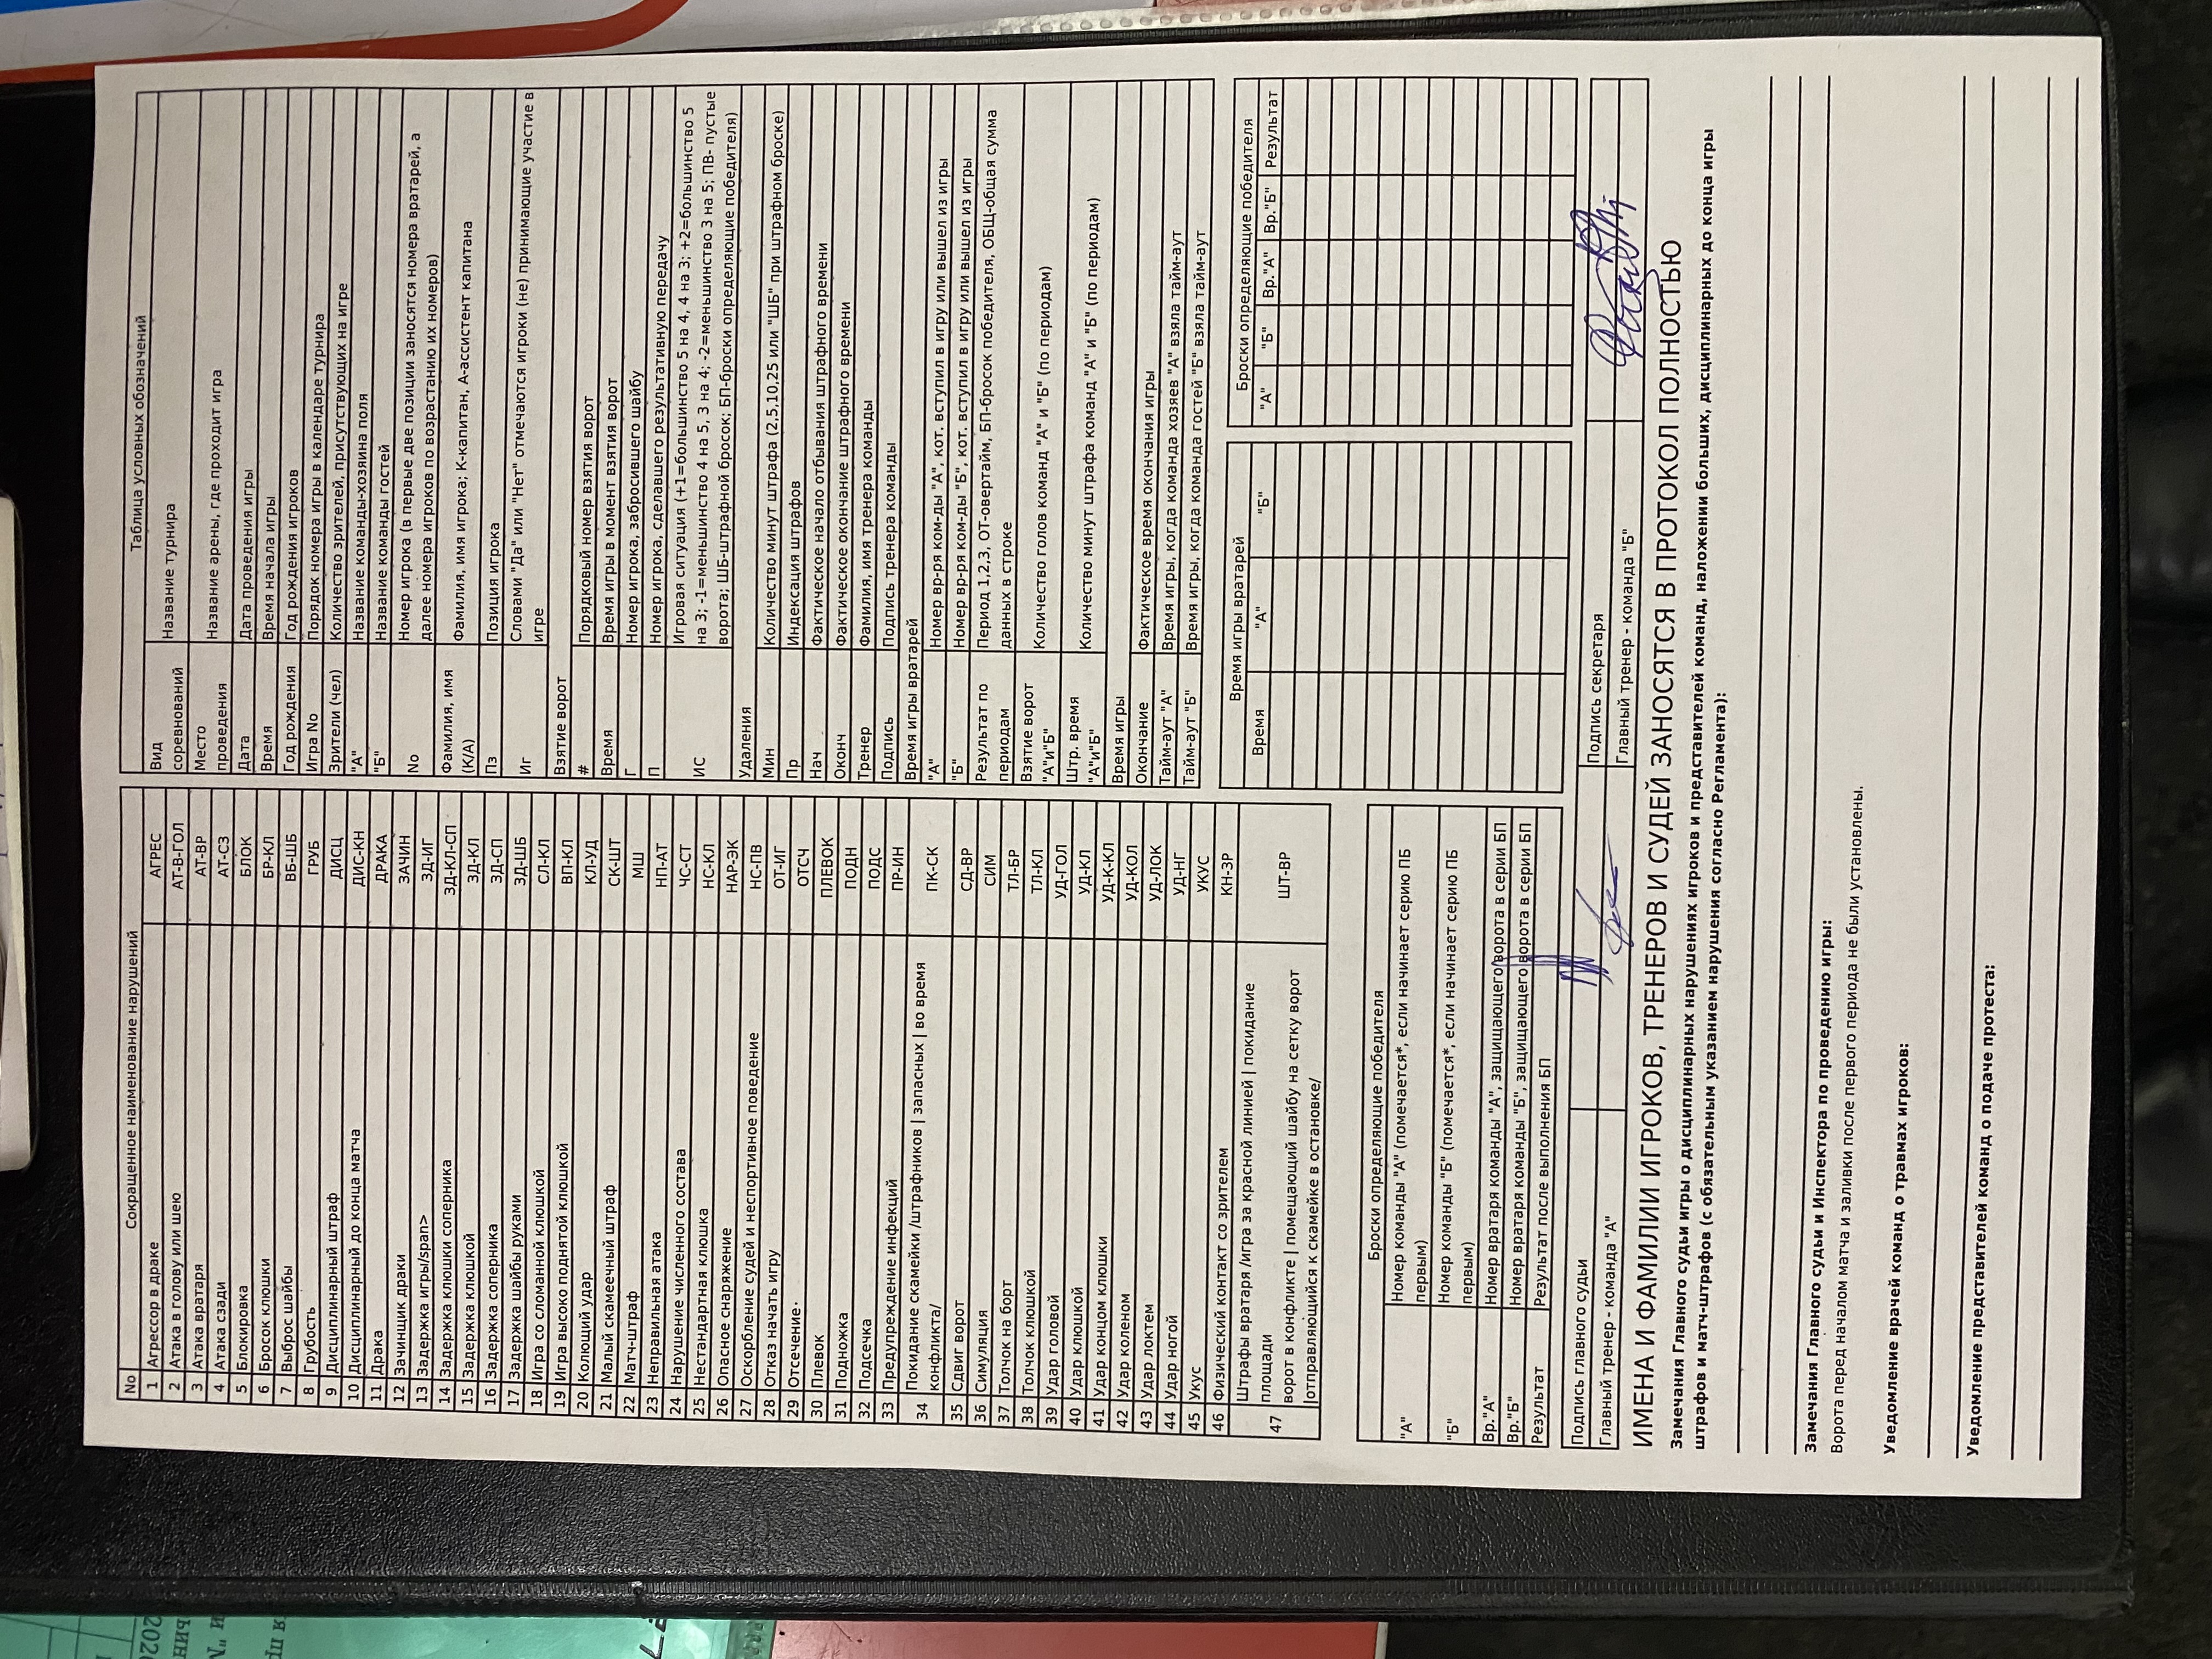 Сокращенное наименование нарушений
No
1 Агрессор в драке АГРЕС
2 Атака в голову или шею АТ-В-ГОЛ
3 Атака вратаря АТ-ВР
4 Атака сзади АТ-СЗ
5 Блокировка БЛОК
6 Бросок клюшки БР-КЛ
7 Выброс шайбы ВБ-ШБ
8 Грубость ГРУБ
9 Дисциплинарный штраф ДИСЦ
10 Дисциплинарный до конца матча ДИС-КН
11 Драка ДРАКА
12 Зачинщик драки ЗАЧИН
13 Задержка игры/span> ЗД-ИГ
14 Задержка клюшки соперника ЗД-КЛ-СП
15 Задержка клюшкой ЗД-КЛ
16 Задержка соперника ЗД-СП
17 Задержка шайбы руками ЗД-ШБ
18 Игра со сломанной клюшкой СЛ-КЛ
19 Игра высоко поднятой клюшкой ВП-КЛ
20 Колющий удар КЛ-УД
21 Малый скамеечный штраф СК-ШТ
22 Матч-штраф МШ
23 Неправильная атака НП-АТ
24 Нарушение численного состава ЧС-СТ
25 Нестандартная клюшка НС-КЛ
26 Опасное снаряжение НАР-ЭК
27 Оскорбление судей и неспортивное поведение НС-ПВ
28 Отказ начать игру ОТ-ИГ
29 Отсечение· ОТСЧ
30 Плевок ПЛЕВОК
31 Подножка ПОДН
32 Подсечка ПОДС
33 Предупреждение инфекций ПР-ИН
34 Покидание скамейки /штрафников | запасных | во время
конфликта/ ПК-СК
35 Сдвиг ворот СД-ВР
36 Симуляция СИМ
37 Толчок на борт ТЛ-БР
38 Толчок клюшкой ТЛ-КЛ
39 Удар головой УД-ГОЛ
40 Удар клюшкой УД-КЛ
41 Удар концом клюшки УД-К-КЛ
42 Удар коленом УД-КОЛ
43 Удар локтем УД-ЛОК
44 Удар ногой УД-НГ
45 Укус УКУС
46 Физический контакт со зрителем КН-ЗР
47 Штрафы вратаря /игра за красной линией | покидание
площади
ворот в конфликте | помещающий шайбу на сетку ворот
|отправляющийся к скамейке в остановке/ ШТ-ВР
Таблица условных обозначений
Вид
соревнований Название турнира
Место
проведения Название арены, где проходит игра
Дата Дата проведения игры
Время Время начала игры
Год рождения Год рождения игроков
Игра No Порядок номера игры в календаре турнира
Зрители (чел) Количество зрителей, присутствующих на игре
"А" Название команды-хозяина поля
"Б" Название команды гостей
No Номер игрока (в первые две позиции заносятся номера вратарей, а
далее номера игроков по возрастанию их номеров)
Фамилия, имя
(К/А) Фамилия, имя игрока; К-капитан, А-ассистент капитана
Пз Позиция игрока
Иг Словами "Да" или "Нет" отмечаются игроки (не) принимающие участие в
игре
Взятие ворот
# Порядковый номер взятия ворот
Время Время игры в момент взятия ворот
Г Номер игрока, забросившего шайбу
П Номер игрока, сделавшего результативную передачу
ИС Игровая ситуация (+1=большинство 5 на 4, 4 на 3; +2=большинство 5
на 3; -1=меньшинство 4 на 5, 3 на 4; -2=меньшинство 3 на 5; ПВ- пустые
ворота; ШБ-штрафной бросок; БП-броски определяющие победителя)
Удаления
Мин Количество минут штрафа (2,5,10,25 или "ШБ" при штрафном броске)
Пр Индексация штрафов
Нач Фактическое начало отбывания штрафного времени
Оконч Фактическое окончание штрафного времени
Тренер Фамилия, имя тренера команды
Подпись Подпись тренера команды
Время игры вратарей
"А" Номер вр-ря ком-ды "А", кот. вступил в игру или вышел из игры
"Б" Номер вр-ря ком-ды "Б", кот. вступил в игру или вышел из игры
Результат по
периодам Период 1,2,3, ОТ-овертайм, БП-бросок победителя, ОБЩ-общая сумма
данных в строке
Взятие ворот
"А"и"Б" Количество голов команд "А" и "Б" (по периодам)
Штр. время
"А"и"Б" Количество минут штрафа команд "А" и "Б" (по периодам)
Время игры
Окончание Фактическое время окончания игры
Тайм-аут "А" Время игры, когда команда хозяев "А" взяла тайм-аут
Тайм-аут "Б" Время игры, когда команда гостей "Б" взяла тайм-аут
Броски определяющие победителя
"А" Номер команды "А" (помечается*, если начинает серию ПБ
первым)
"Б" Номер команды "Б" (помечается*, если начинает серию ПБ
первым)
Вр."А" Номер вратаря команды "А", защищающего ворота в серии БП
Вр."Б" Номер вратаря команды "Б", защищающего ворота в серии БП
Результат Результат после выполнения БП
Время игры вратарей
Время "А" "Б"
Броски определяющие победителя
"А" "Б" Вр."А" Вр."Б" Результат
Подпись главного судьи Подпись секретаря
Главный тренер - команда "А" Главный тренер - команда "Б"
ИМЕНА И ФАМИЛИИ ИГРОКОВ, ТРЕНЕРОВ И СУДЕЙ ЗАНОСЯТСЯ В ПРОТОКОЛ ПОЛНОСТЬЮ
Замечания Главного судьи игры о дисциплинарных нарушениях игроков и представителей команд, наложении больших, дисциплинарных до конца игры
штрафов и матч-штрафов (с обязательным указанием нарушения согласно Регламента):
Замечания Главного судьи и Инспектора по проведению игры:
Ворота перед началом матча и заливки после первого периода не были установлены.
Уведомление врачей команд о травмах игроков:
Уведомление представителей команд о подаче протеста: